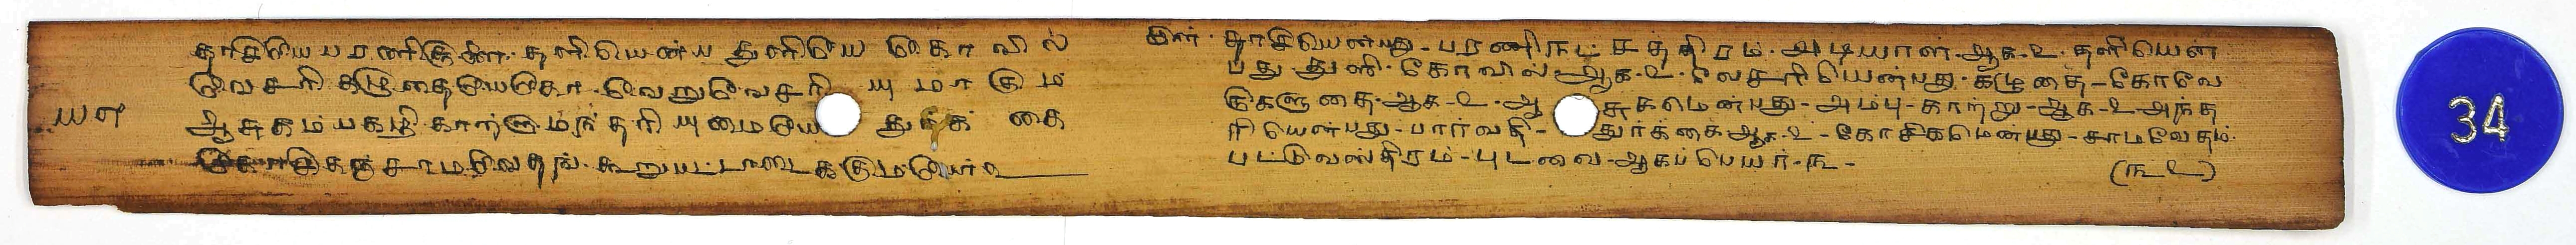 தாசியே பரணிதொண்டி. தளியென்ப துளியே கோவில்
வேசரி கழுதையேகோ வேறுவேசரி யுமாகும்
௰௮
ஆசுகம் பகழி காற்றாம் அந்தரி யுமையே துர்க்கை
கோசிகஞ் சாமவேதங் கூறுபட்டாடைக்கும்பேர் உ
இள். தாசியென்பது - பரணிநட்சத்திரம். அடியாள். ஆக. உ. தளியென்
பது. துளி. கோவில் ஆக. உ. வேசரியென்பது. கழுதை - கோவே
றுகளுதை. ஆக - உ. ஆசுகமென்பது - அம்பு - காற்று - ஆக - உ அந்த
ரியென்பது - பார்வதி - துர்க்கை ஆக - உ - கோசிகமென்பது - சாமவேதம்.
பட்டுவஸ்திரம் - புடவை - ஆகப்பெயர் - ௩ -
(௩௨)
34